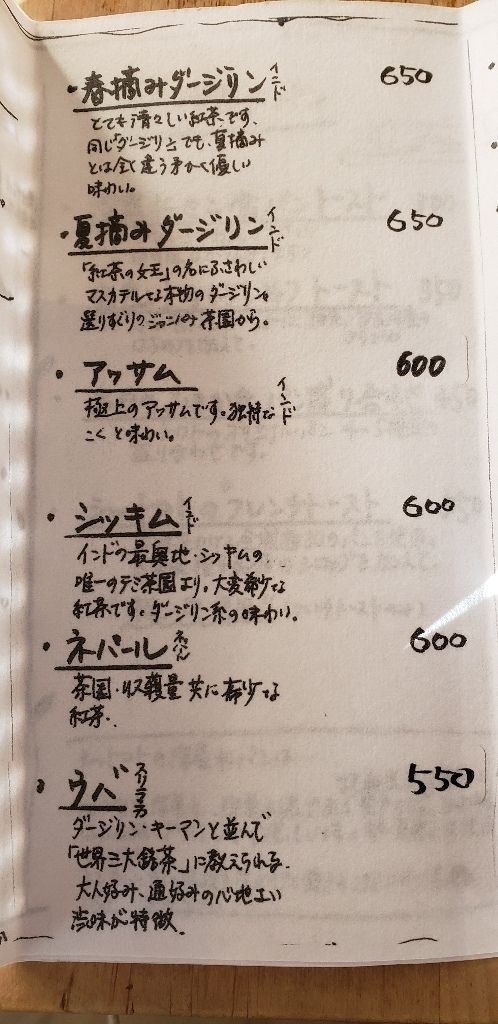 ・春摘みダージリン インド 650
とても清々しい紅茶です、
同じダージリンでも、夏摘み
とは全く違う柔かく優しい
味わい。
・夏摘みダージリン インド 650
「紅茶の女王」の名にふさわしい
マスカテルな本物のダージリン。
選りすぐりのジャンパナ茶園から。
・アッサム インド 600
極上のアッサムです。独特な
こくと味わい。
・シッキム インド 600
インドの最奥地・シッキムの
唯一のテミ茶園より。大変希少な
紅茶です。ダージリン系の味わい。
・ネパール ネパール 600
茶園・収穫量共に希少な
紅茶。
・ウバ スリランカ 550
ダージリン・キーマンと並んで
「世界三大銘茶」に数えられる。
大人好み、通好みの心地よい
渋味が特徴。